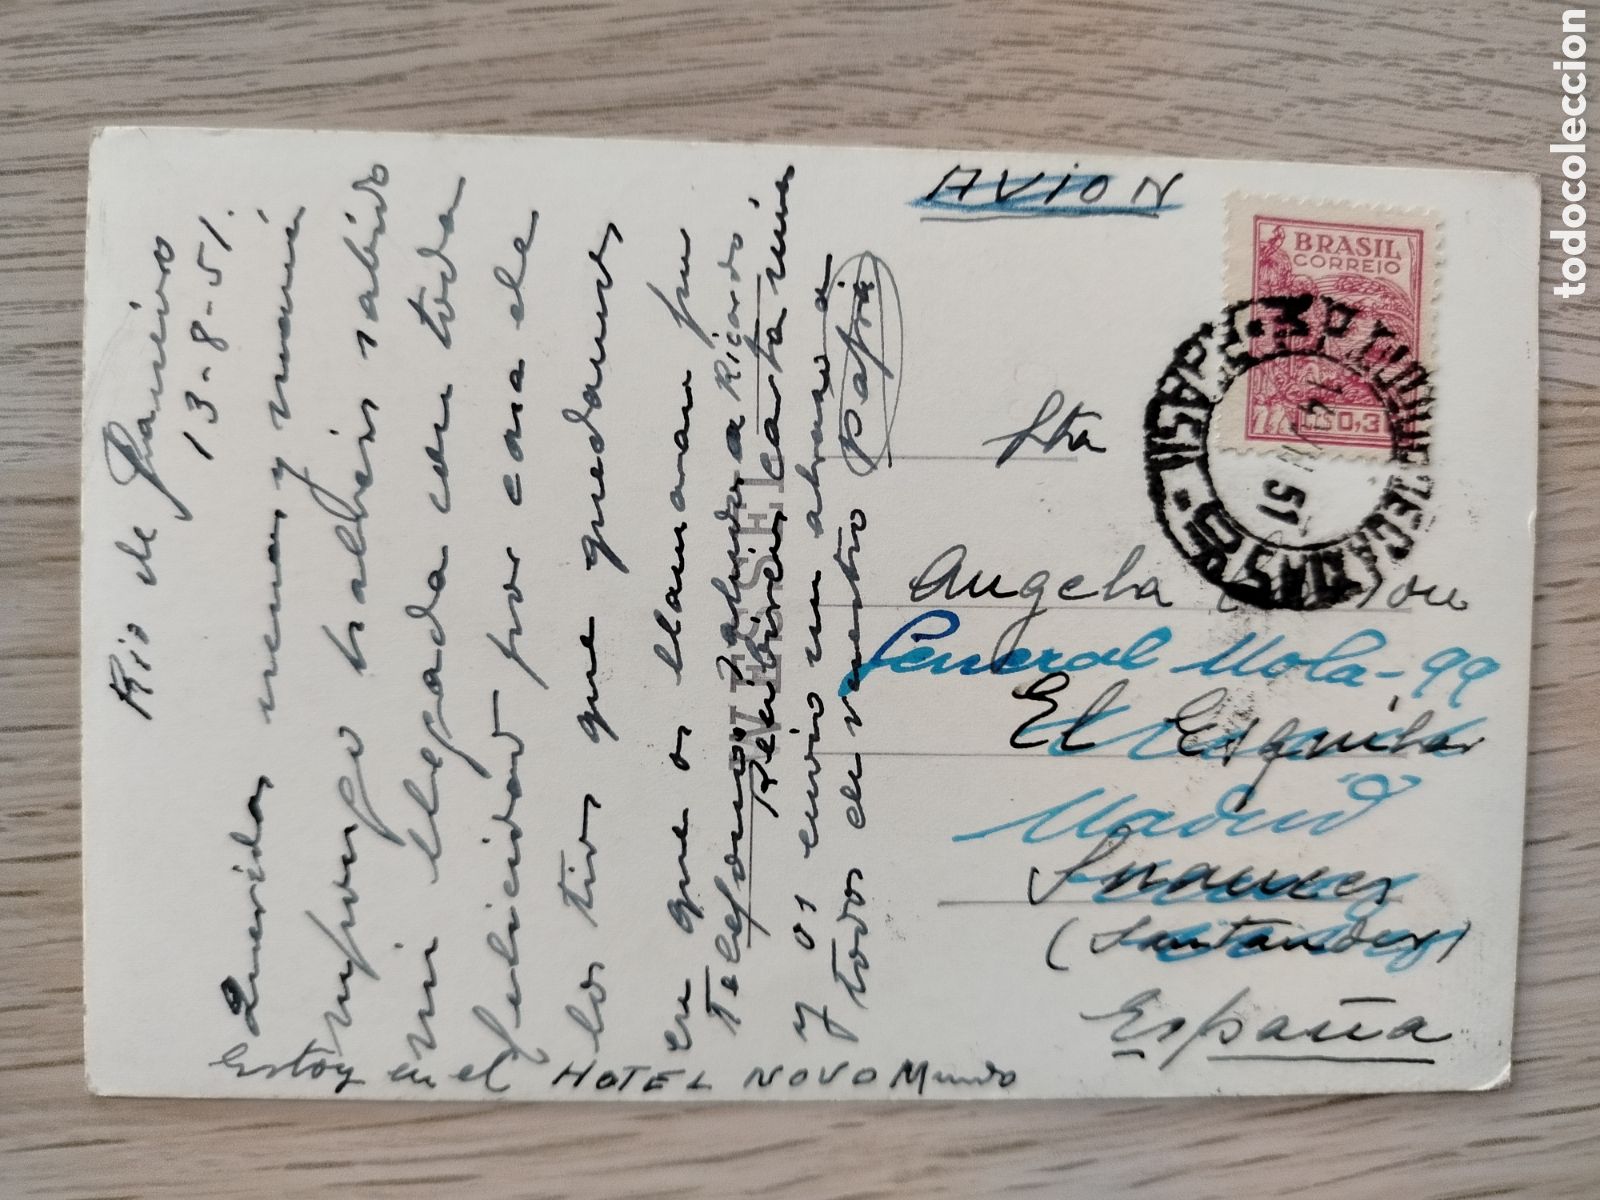 Rio de Janeiro
13-8-51.
Queridas nenas y mamá
supongo habreis sabido
mi llegada con toda
felicidad por casa de
los tios que quedamos
en que os llamaran por
Telefono, saludos a Ricardo
Recibireis carta mia
y os envio un abrazo a
todos de vuestro Papá
Estoy en el HOTEL NOVO Mundo
WESSEL
AVION
BRASIL
CORREIO
0,3
BRASIL
14
51
Srta
Angela
General Mola-99
El Esquilar
Madrid
Suances
(Santander)
España
todocoleccion